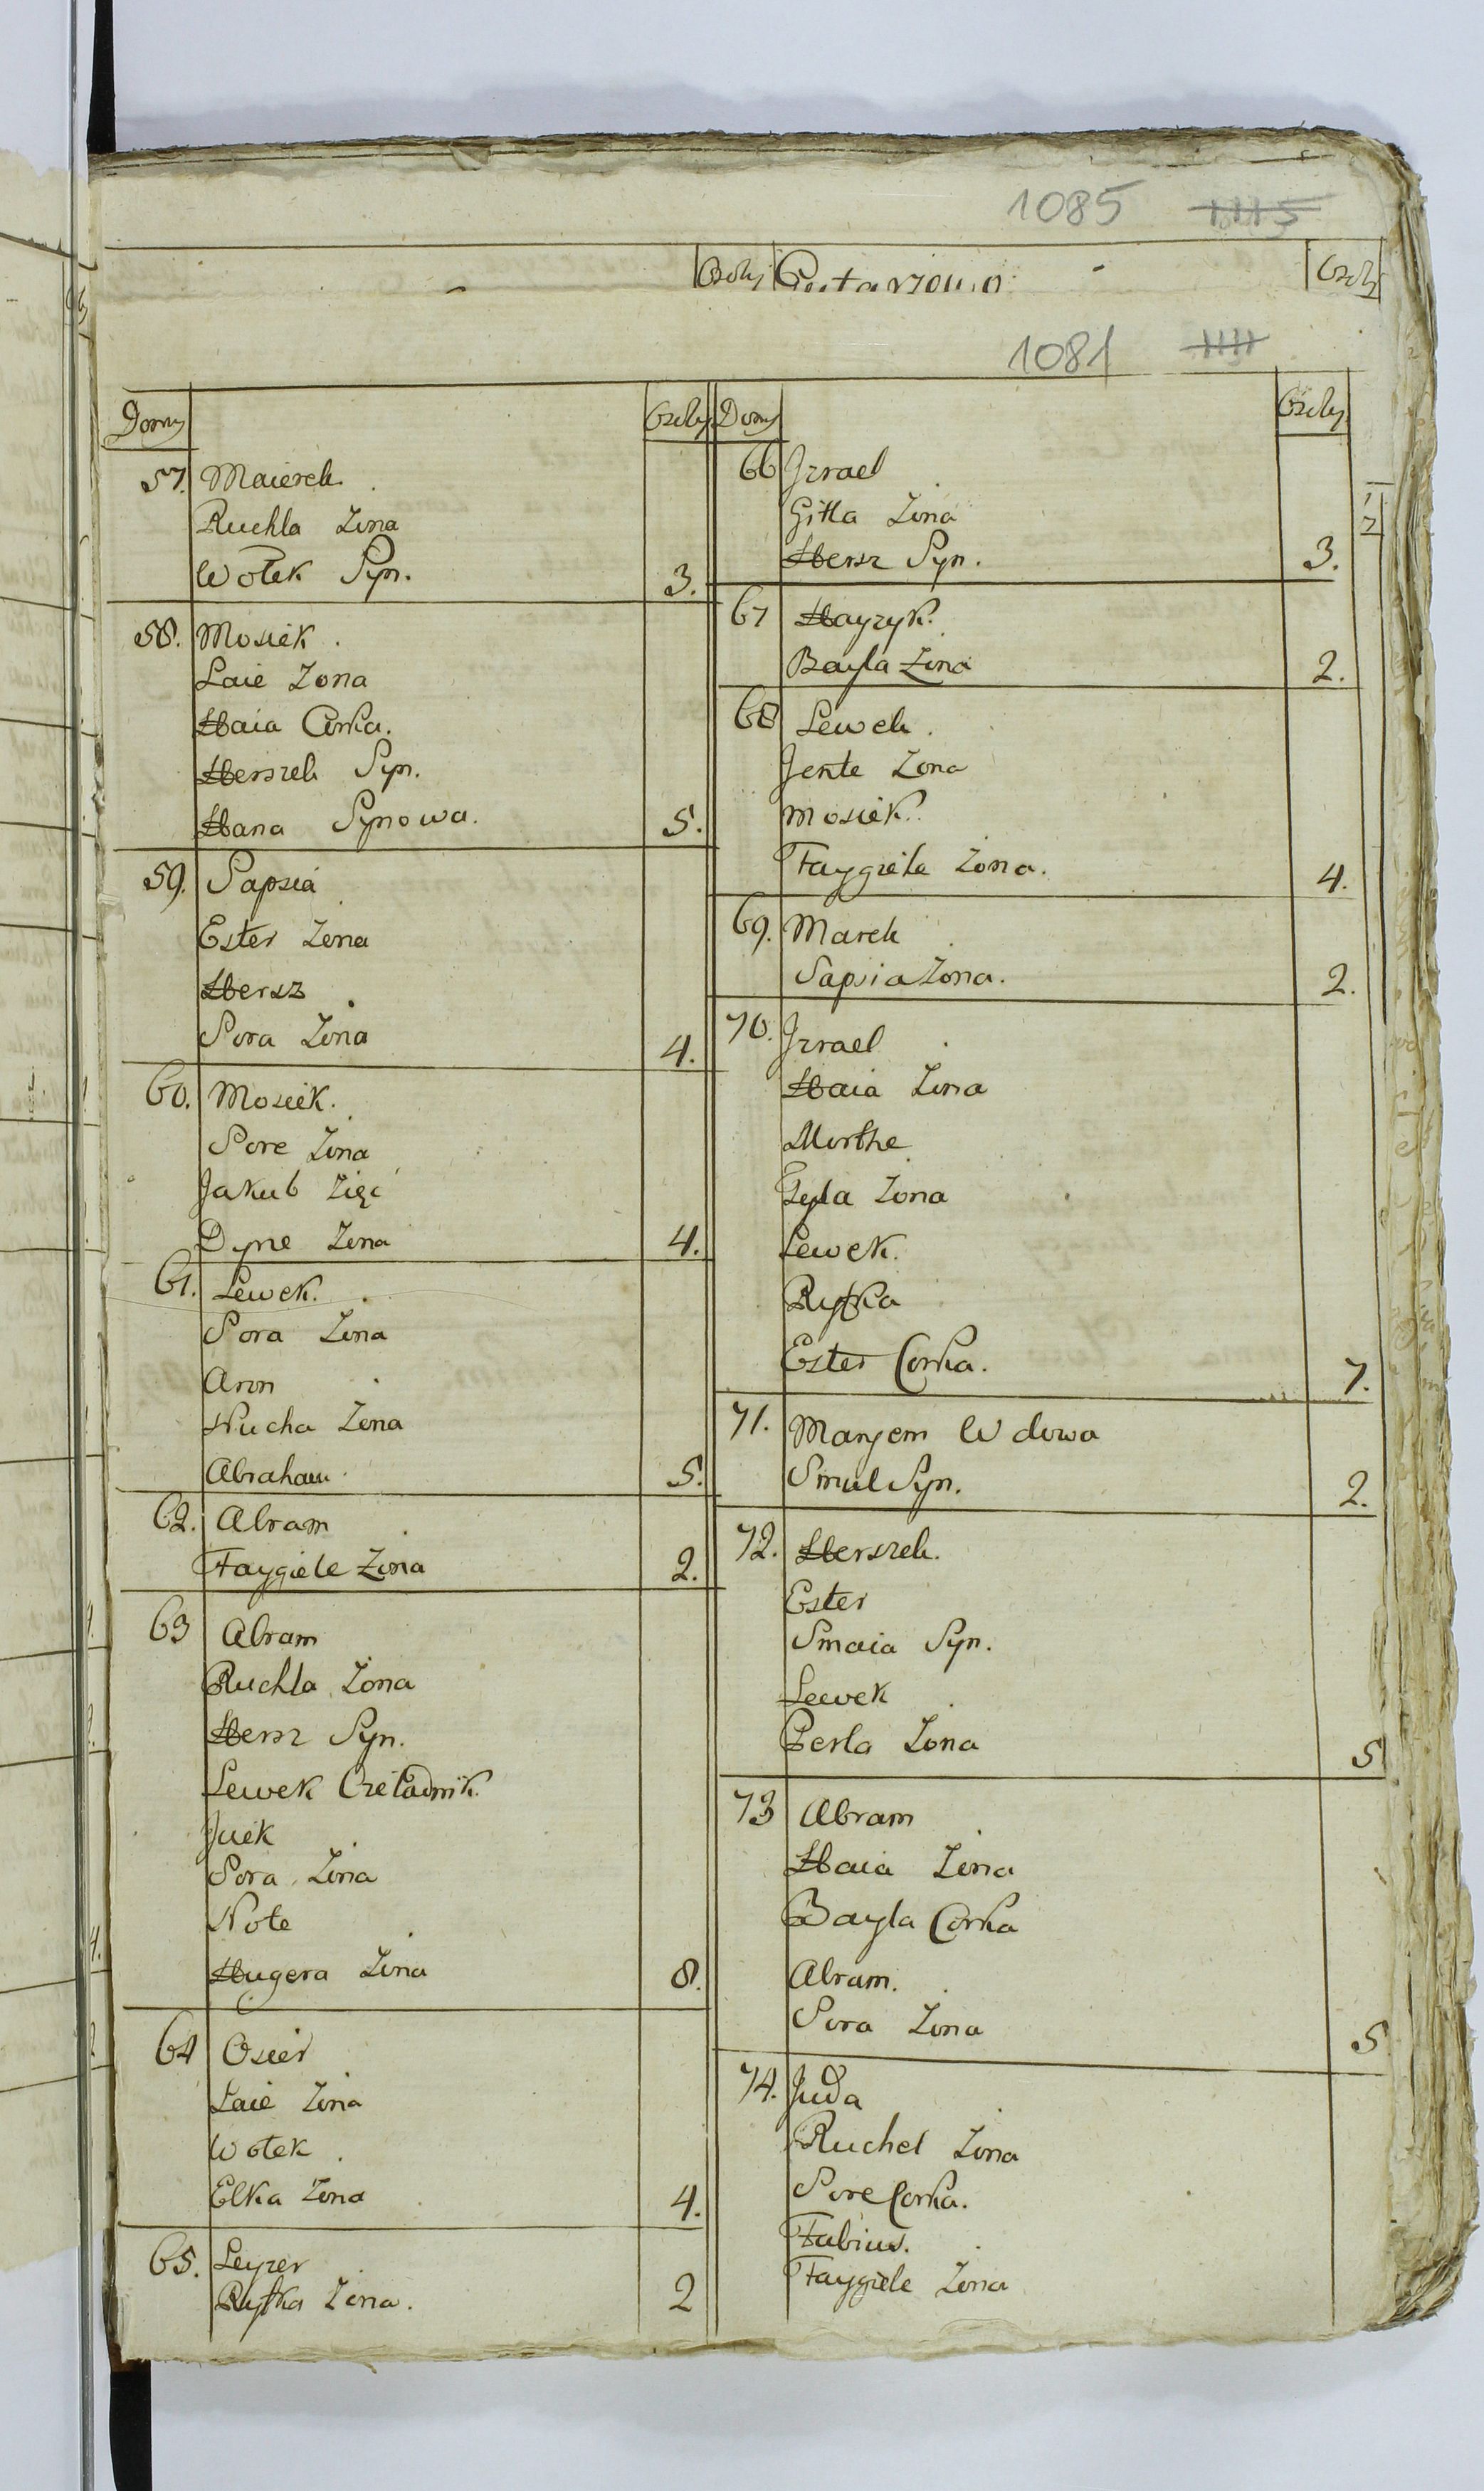 1085 1115
Osoby Osoby
1081 1111
Domy Osoby Domy Osoby
57. Maierek.
Ruchla Zona
Wolek Syn. 3.
58. Mosiek.
Laie Zona
Haia Corka.
Herszek Syn.
Hana Synowa. 5.
59. Sapsia
Ester Zona
Hersz
Sora Zona 4.
60. Mosiek.
Sore Zona
Jakub Zięć
Dyne Zona 4.
61. Lewek.
Sora Zona
Aron
Nucha Zona
Abraham. 5.
62. Abram
Faygiele Zona 2.
63 Abram
Ruchla Zona
Hersz Syn.
Lewek Czeladnik.
Juek
Sora Zona
Note
Hugera Zona 8.
64 Osier
Laie Zona
Wolek.
Elka Zona 4.
65. Leyzer
Ryfka Zona. 2
66 Jzrael
Gitla Zona
Hersz Syn. 3.
67 Hayzyk.
Bayla Zona 2.
68 Lewek.
Jente Zona
Mosiek.
Faygiele Zona. 4.
69. Marek
Sapsia Zona. 2.
70. Jzrael
Haia Zona
Morthe
Tyla Zona
Lewek.
Ryfka
Ester Corka. 7.
71. Maryem Wdowa
Smul Syn. 2.
72. Herszek.
Ester
Smaia Syn.
Lewek
Perla Zona 5
73 Abram
Haia Zona
Bayla Corka
Abram.
Sora Zona 5
74. Juda
Ruchel Zona
Sore Corka.
Fabius.
Faygiele Zona